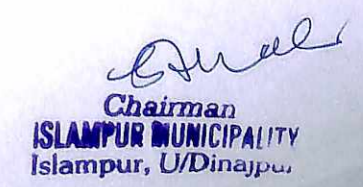 Chairman
ISLAMPUR MUNICIPALITY
Islampur, U/Dinajpur